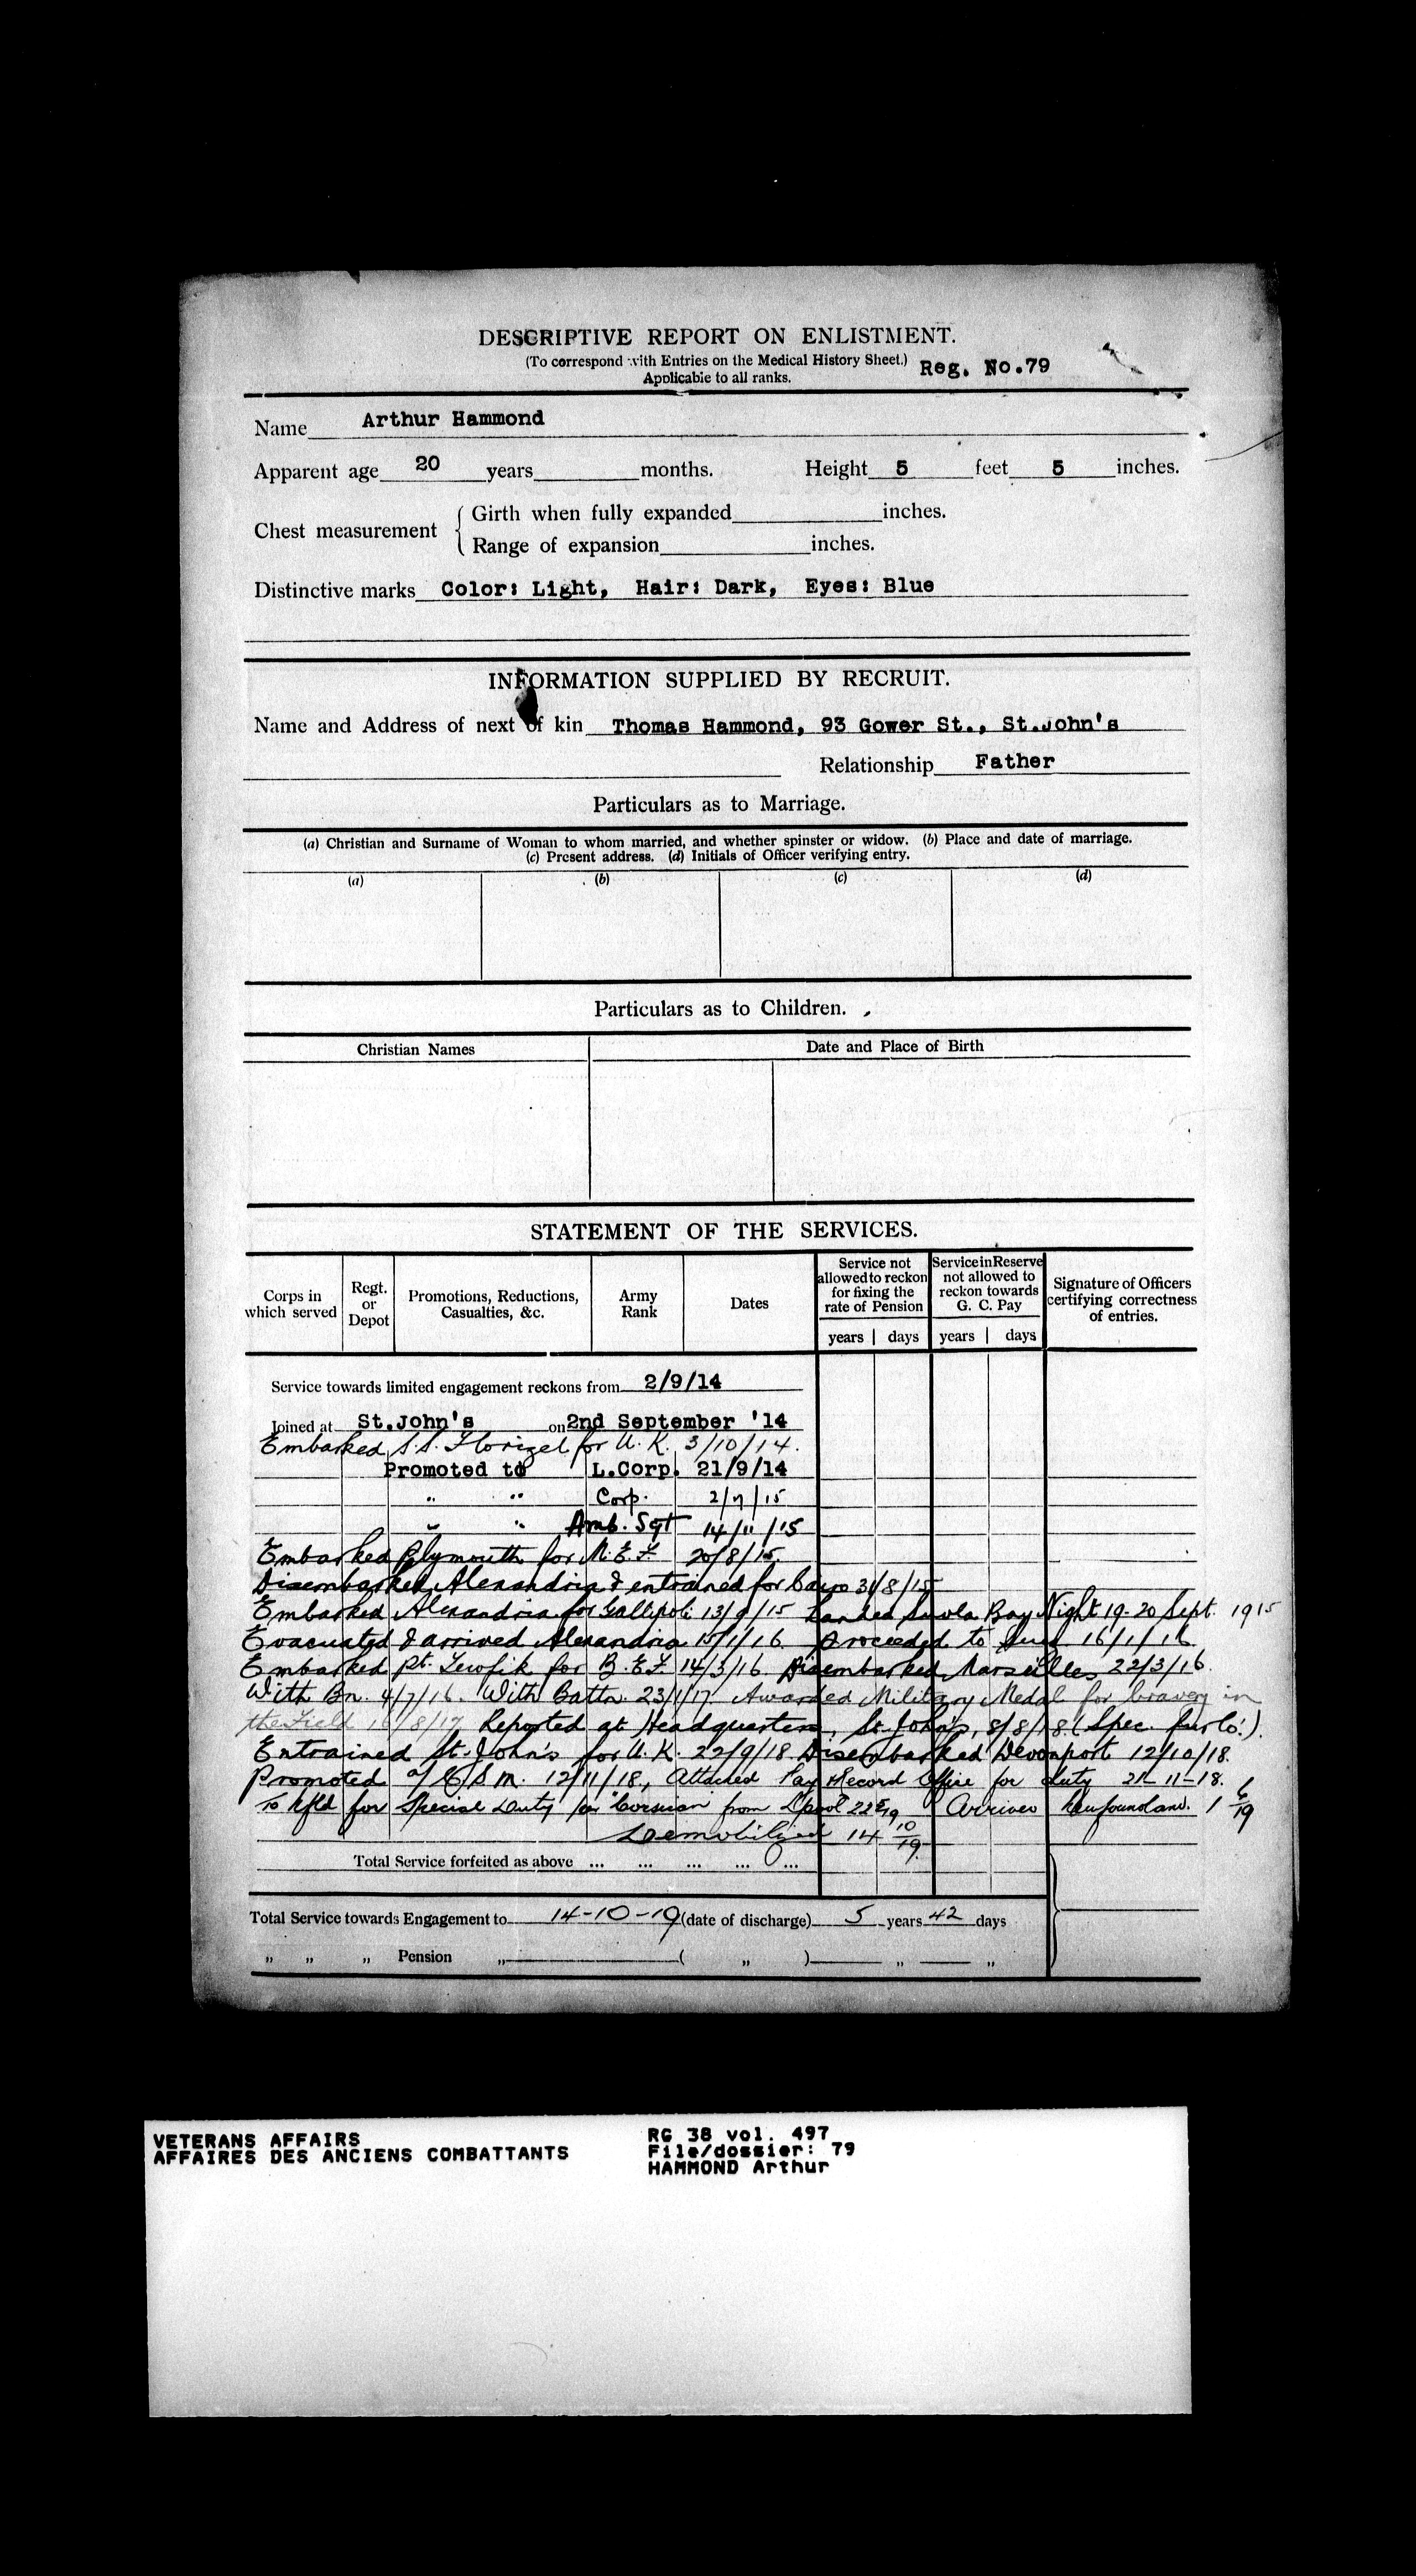 DESCRIPTIVE REPORT ON ENLISTMENT.
(To correspond with Entries on the Medical History Sheet.)
Applicable to all ranks.
Reg. No.79
Name Arthur Hammond
Apparent age 20 years months. Height 5 feet 5 inches.
Chest measurement { Girth when fully expanded inches.
Range of expansion inches.
Distinctive marks Color: Light, Hair: Dark, Eyes: Blue
INFORMATION SUPPLIED BY RECRUIT.
Name and Address of next of kin Thomas Hammond, 93 Gower St., St.John's
Relationship Father
Particulars as to Marriage.
(a) Christian and Surname of Woman to whom married, and whether spinster or widow. (b) Place and date of marriage.
(c) Present address. (d) Initials of Officer verifying entry.
(a) (b) (c) (d)
Particulars as to Children.
Christian Names Date and Place of Birth
STATEMENT OF THE SERVICES.
Corps in which served Regt. or Depot Promotions, Reductions, Casualties, &c. Army Rank Dates Service not allowed to reckon for fixing the rate of Pension Service in Reserve not allowed to reckon towards G. C. Pay Signature of Officers certifying correctness of entries.
years days years days
Service towards limited engagement reckons from 2/9/14
Joined at St.John's on 2nd September '14
Embarked S.S. Florizel for U.K. 3/10/14.
Promoted to L.Corp. 21/9/14
" " Corp. 2/7/15
" " Sgt 14/11/15
Embarked Plymouth for M.E.F. 20/8/15.
Disembarked Alexandria & entrained for Cairo 31/8/15
Embarked Alexandria for Gallipoli 13/9/15 Landed Suvla Bay Night 19-20 Sept. 1915
Evacuated & arrived Alexandria 15/1/16. Proceeded to Suez 16/1/16
Embarked Pt. Tewfik for B.E.F. 14/3/16 Disembarked Marseilles 22/3/16.
With Bn. 4/7/16. With Battn. 23/1/17. Awarded Military Medal for bravery in
the Field /8/17 Reported at Headquarters, St. John's, 8/8/18 (Spec. furlo'.).
Entrained St. John's for U.K. 22/9/18 Disembarked Devonport 12/10/18.
Promoted a/C.S.M. 12/11/18, Attached Pay & Record Office for duty 21-11-18.
To Nfld for Special Duty per "Corsican" from L'pool 22 5/19 Arrived Newfoundland. 1 6/19
Demobilized 14 10/19.
Total Service forfeited as above ... ... ... ... ...
Total Service towards Engagement to 14-10-19 (date of discharge) 5 years 42 days
" " " Pension " ( " ) " "
VETERANS AFFAIRS
AFFAIRES DES ANCIENS COMBATTANTS
RG 38 vol. 497
File/dossier: 79
HAMMOND Arthur